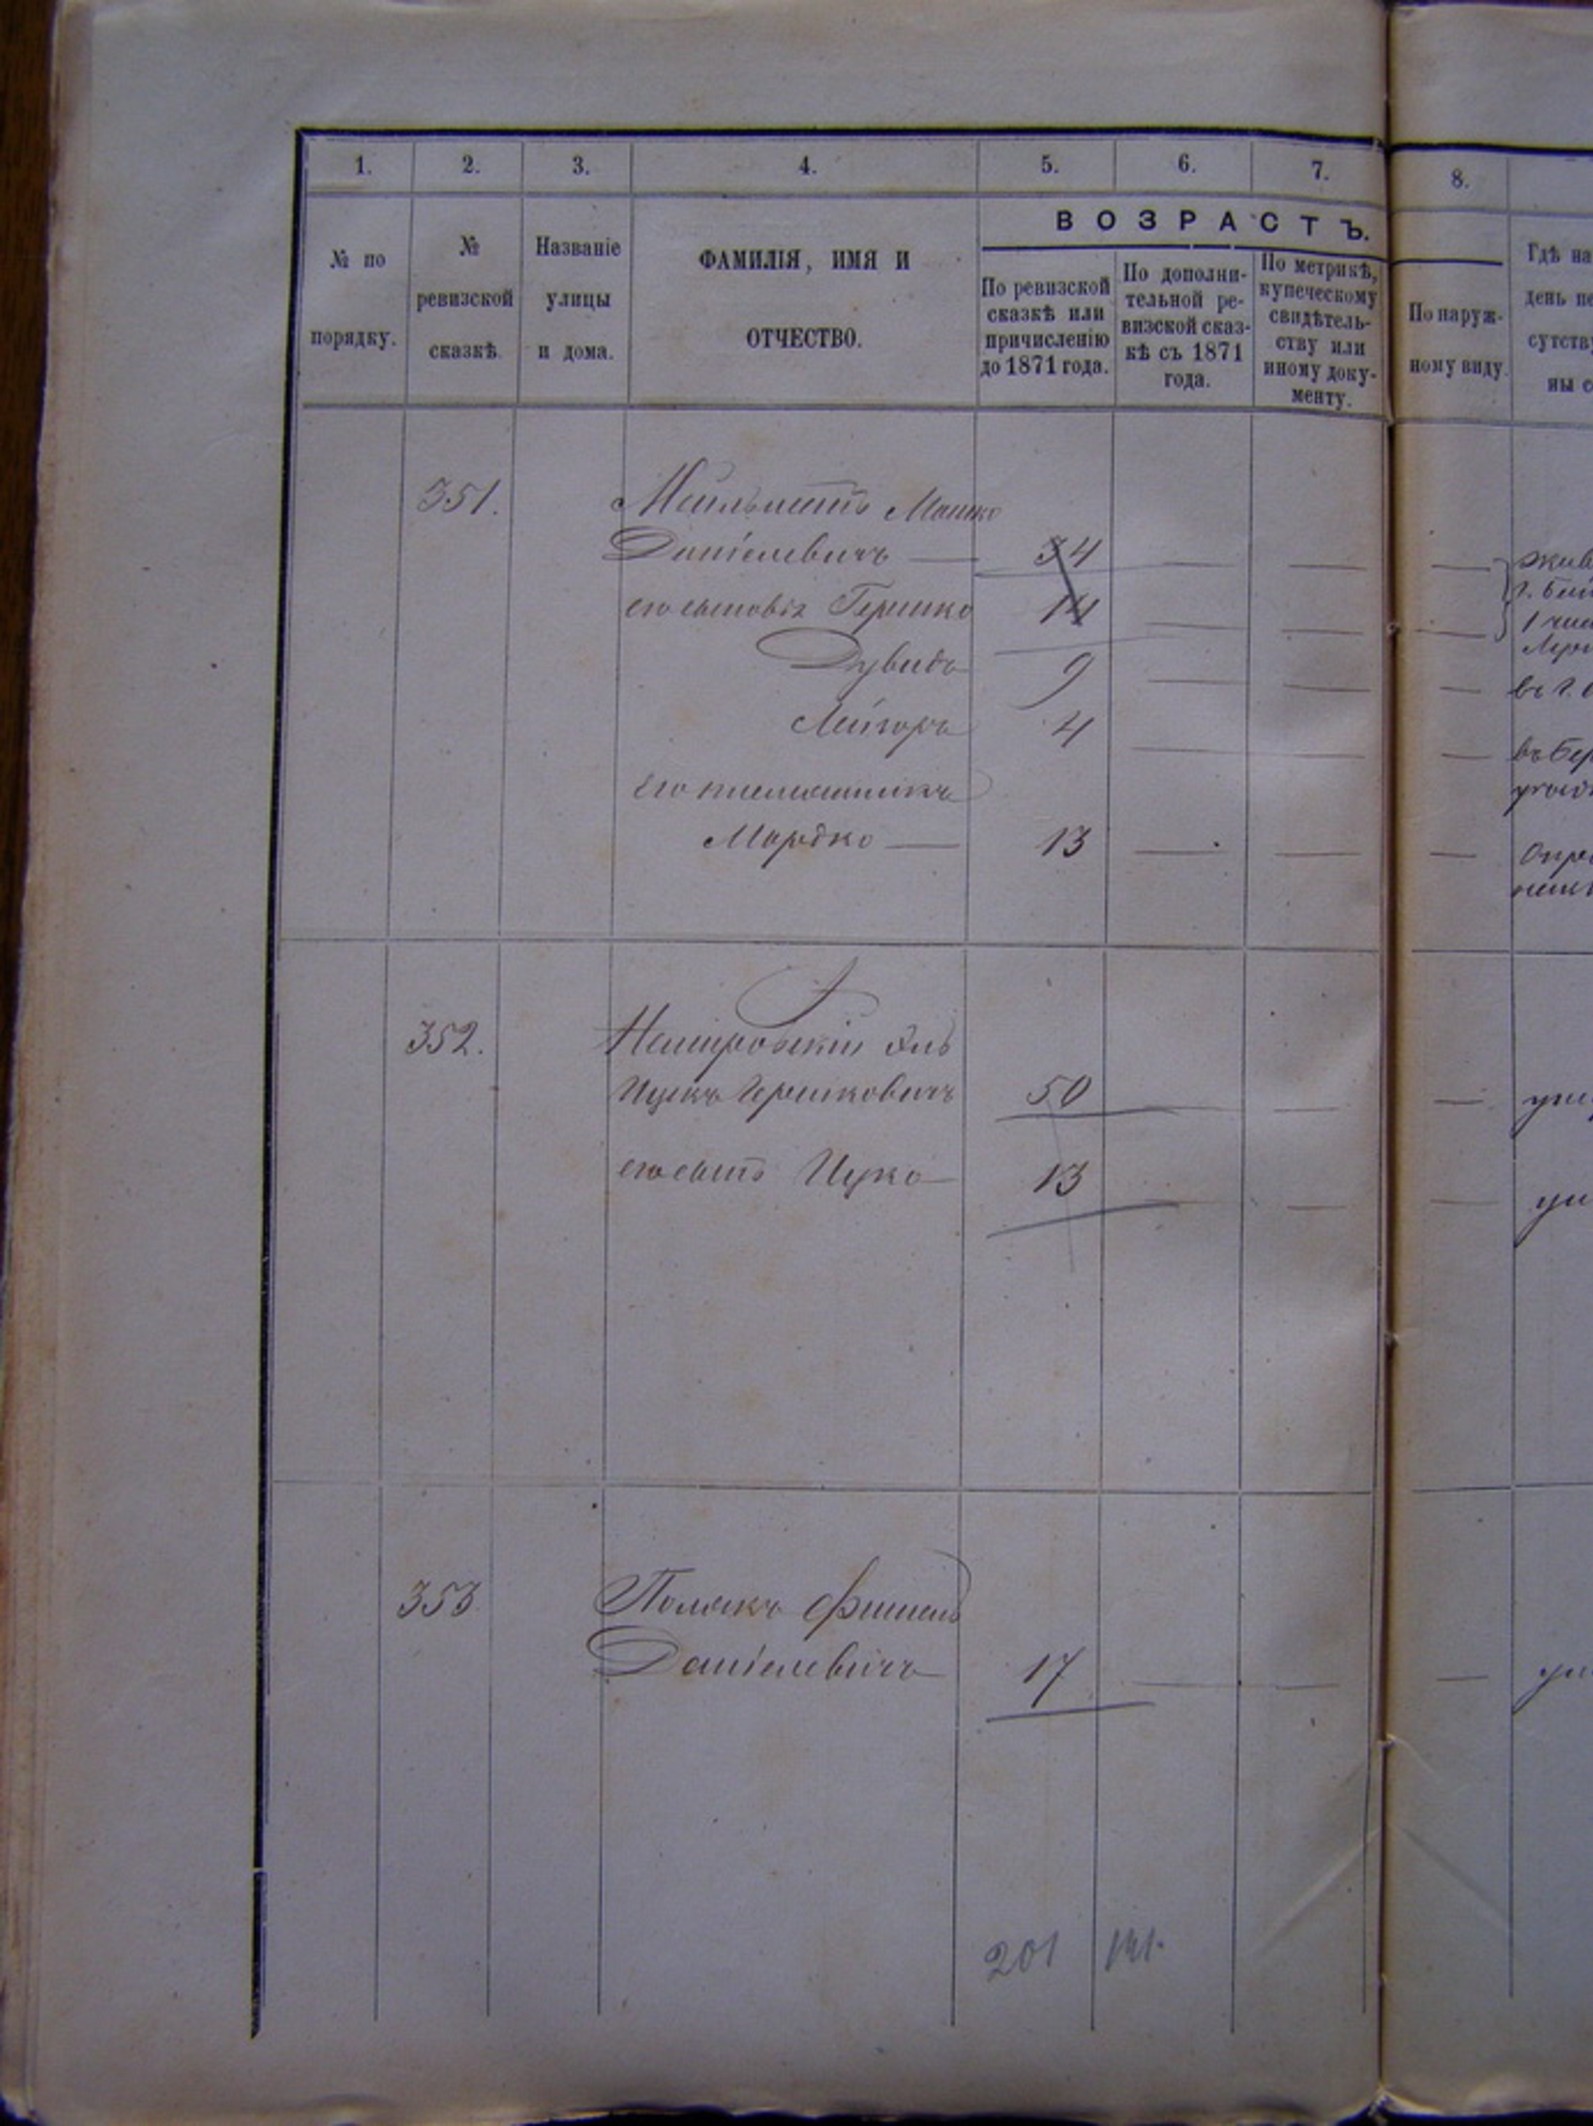 1. 2. 3. 4. 5. 6. 7. 8.
ВОЗРАСТЪ.
№ по порядку.
№ ревизской сказкѣ.
Названіе улицы и дома.
ФАМИЛІЯ, ИМЯ И ОТЧЕСТВО.
По ревизской сказкѣ или причисленію до 1871 года.
По дополнительной ревизской сказкѣ съ 1871 года.
По метрикѣ, купеческому свидѣтельству или иному документу.
По наружному виду.
Гдѣ на
день пе
сутству
ны с
351. Мошко
Даніелевичъ — 34
его сыновья Гершко 14
Дувидъ 9
Лейзоръ 4
его племянникъ
Мордко — 13
352. Немировскій Эль
Ицекъ Гершковичъ 50
его сынъ Ицко 13
353 Полякъ Фишель
Даніелевичъ 17
201